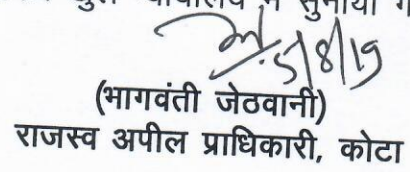 न्यायालय में सुनाया
5/8/19
(भागवंती जेठवानी)
राजस्व अपील प्राधिकारी, कोटा